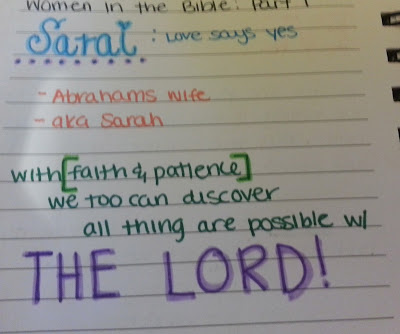 Women in the Bible: Part 1
Sarai : Love says yes
- Abrahams wife
- aka Sarah
with [faith & patience]
we too can discover
all thing are possible w/
THE LORD!